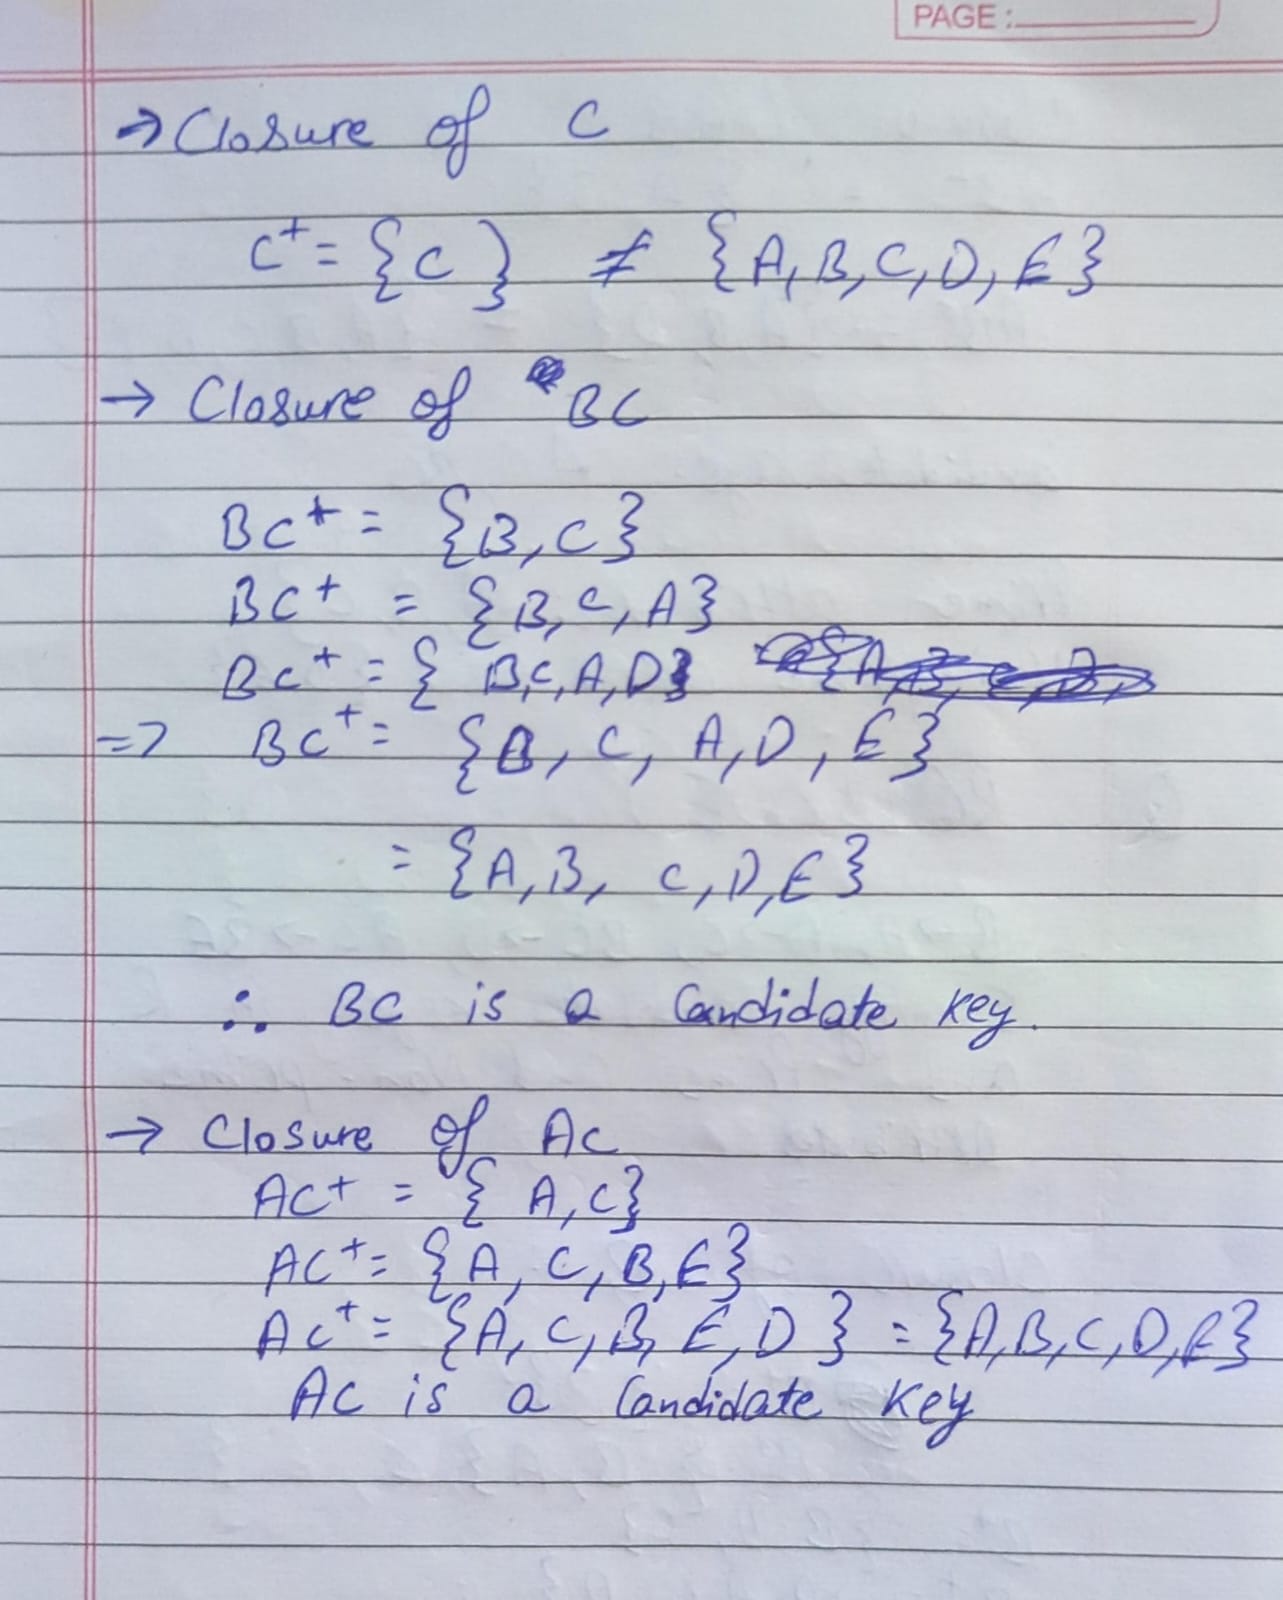 PAGE :
→ Closure of C
C⁺ = {C} ≠ {A, B, C, D, E}
→ Closure of BC
BC⁺ = {B, C}
BC⁺ = {B, C, A}
BC⁺ = { B, C, A, D}
=> BC⁺ = {B, C, A, D, E}
= {A, B, C, D, E}
∴ BC is a Candidate key.
→ Closure of AC
AC⁺ = { A, C}
AC⁺ = {A, C, B, E}
AC⁺ = {A, C, B, E, D } = {A, B, C, D, E}
AC is a Candidate key